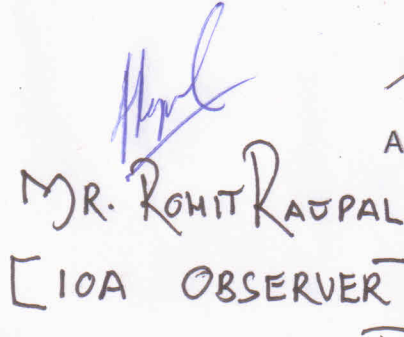 A
MR. ROHIT RAJPAL
[IOA OBSERVER